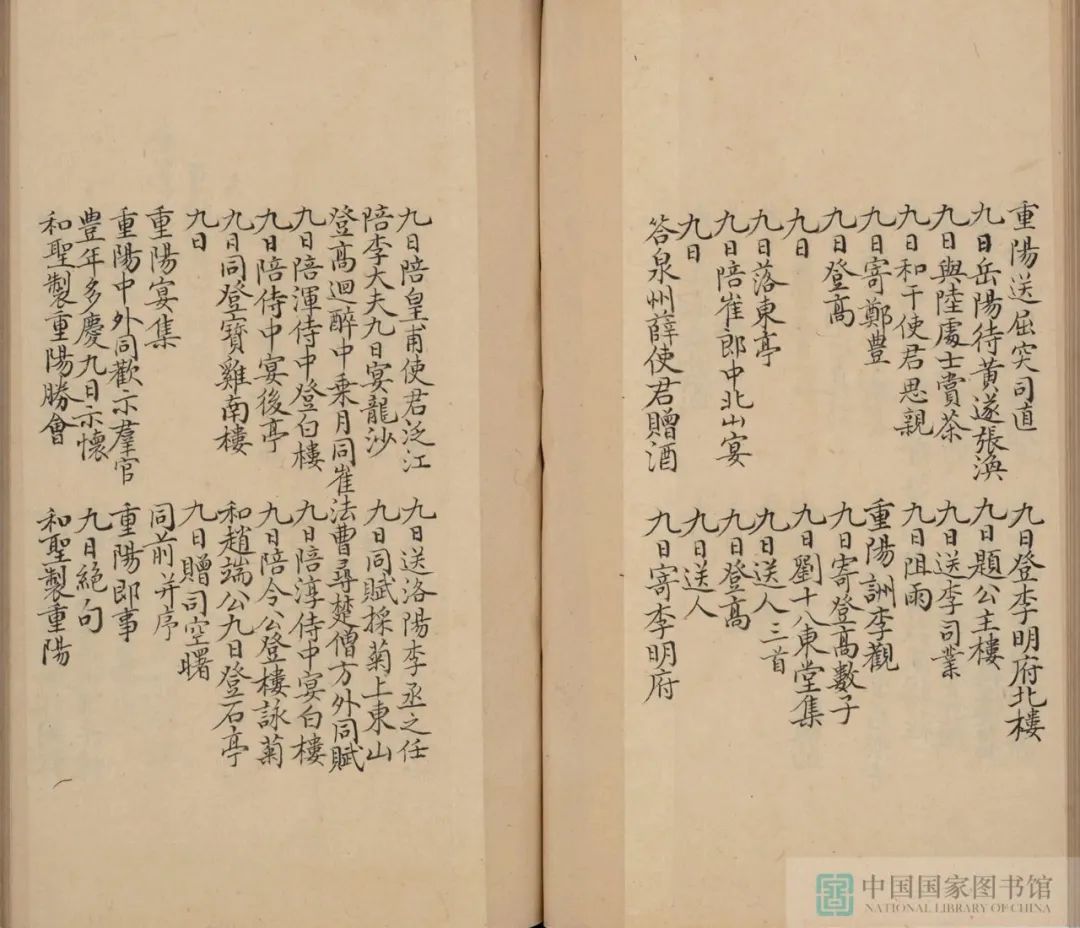 重陽送屈突司直
九日登李明府北樓
九日岳陽待黃遂張渙
九日題公主樓
九日與陸處士賞茶
九日送李司業
九日和于使君思親
九日阻雨
九日寄鄭豊
重陽詶李觀
九日登高
九日寄登高數子
九日
九日劉十八東堂集
九日落東亭
九日送人三首
九日陪崔郎中北山宴
九日登高
九日
九日送人
答泉州薛使君贈酒
九日寄李明府
九日陪皇甫使君泛江
九日送洛陽李丞之任
陪李大夫九日宴龍沙
九日同賦採菊上東山
登高迴醉中乗月同崔法曹尋楚僧方外同賦
九日陪渾侍中登白樓
九日陪淳侍中宴白樓
九日陪侍中宴後亭
九日陪令公登樓詠菊
九日同登寶雞南樓
和趙端公九日登石亭
九日
九日贈司空曙
重陽宴集
同前并序
重陽中外同歡示羣官
重陽即事
豊年多慶九日示懷
九日絕句
和聖製重陽勝會
和聖製重陽
中国国家图书馆
NATIONAL LIBRARY OF CHINA